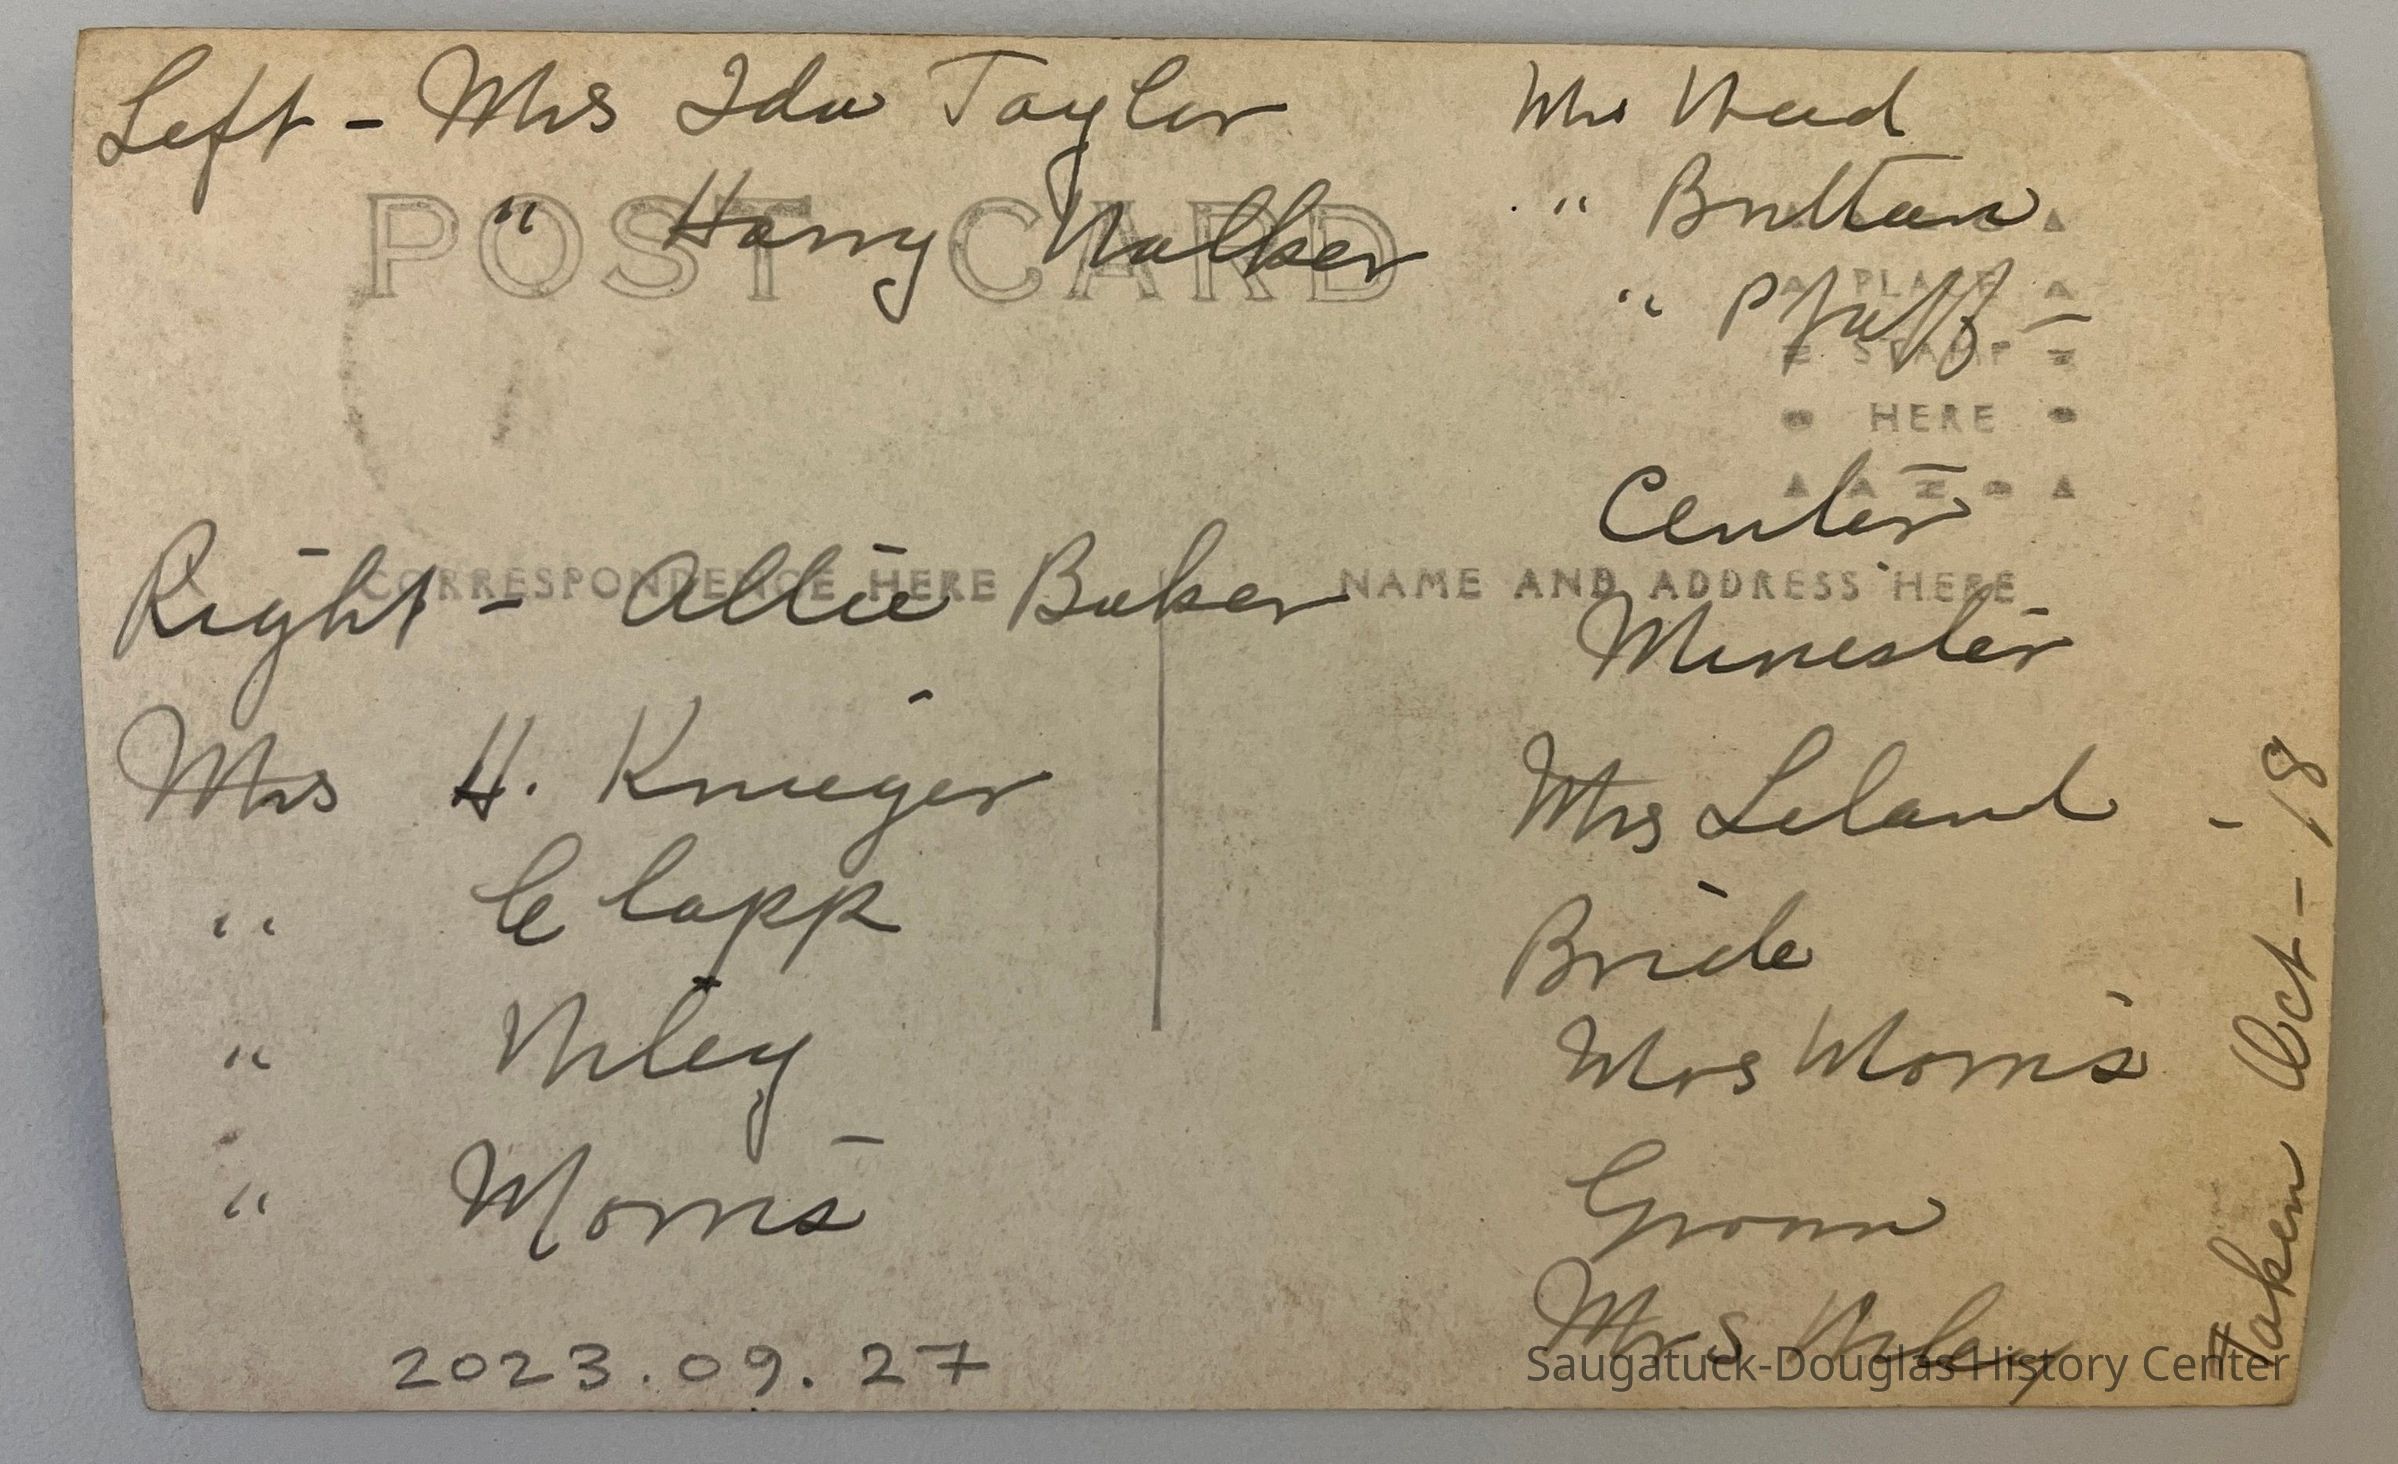 Left - Mrs Ida Taylor
" Harry Walker
POST CARD
Right - Allie Baker
CORRESPONDENCE HERE
Mrs H. Krueger
" Clapp
" Wiley
" Morris
2023.09.27
Mrs
" Brittain
" Pfaff
PLACE
STAMP
HERE
Center
NAME AND ADDRESS HERE
Minester
Mrs Leland
Bride
Mrs Morris
Groom
Mrs Wiley
Taken Oct - 18 -
Saugatuck-Douglas History Center